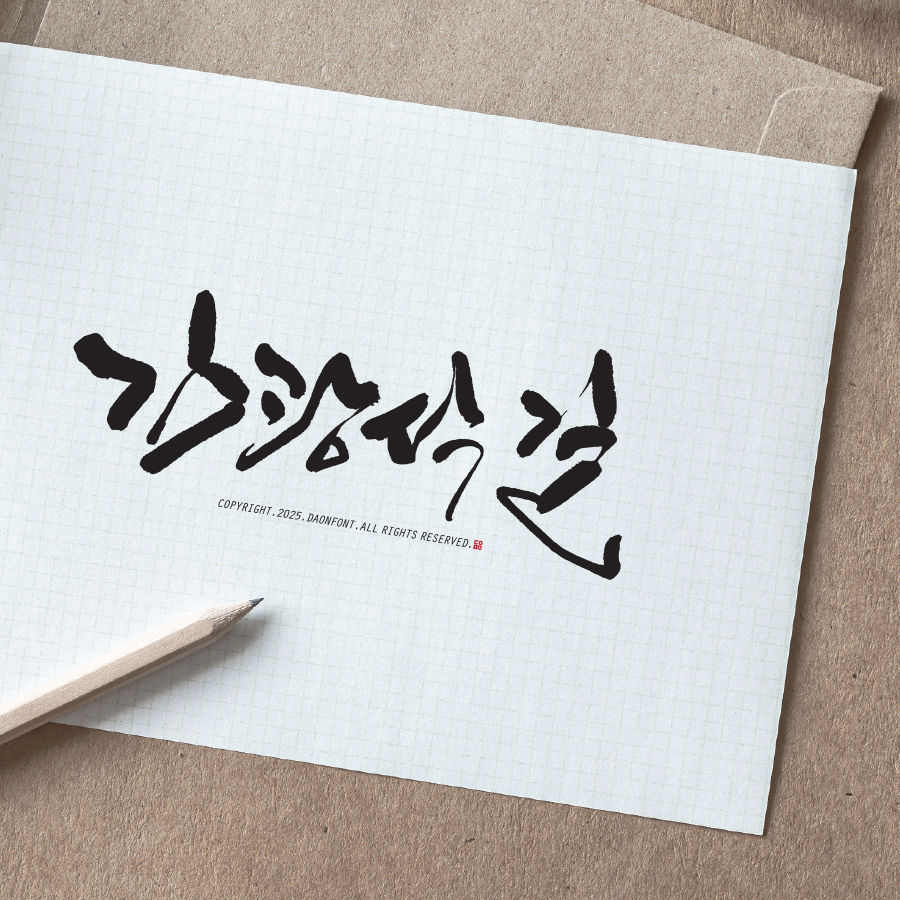 김광석 길
COPYRIGHT.2025.DAONFONT.ALL RIGHTS RESERVED.